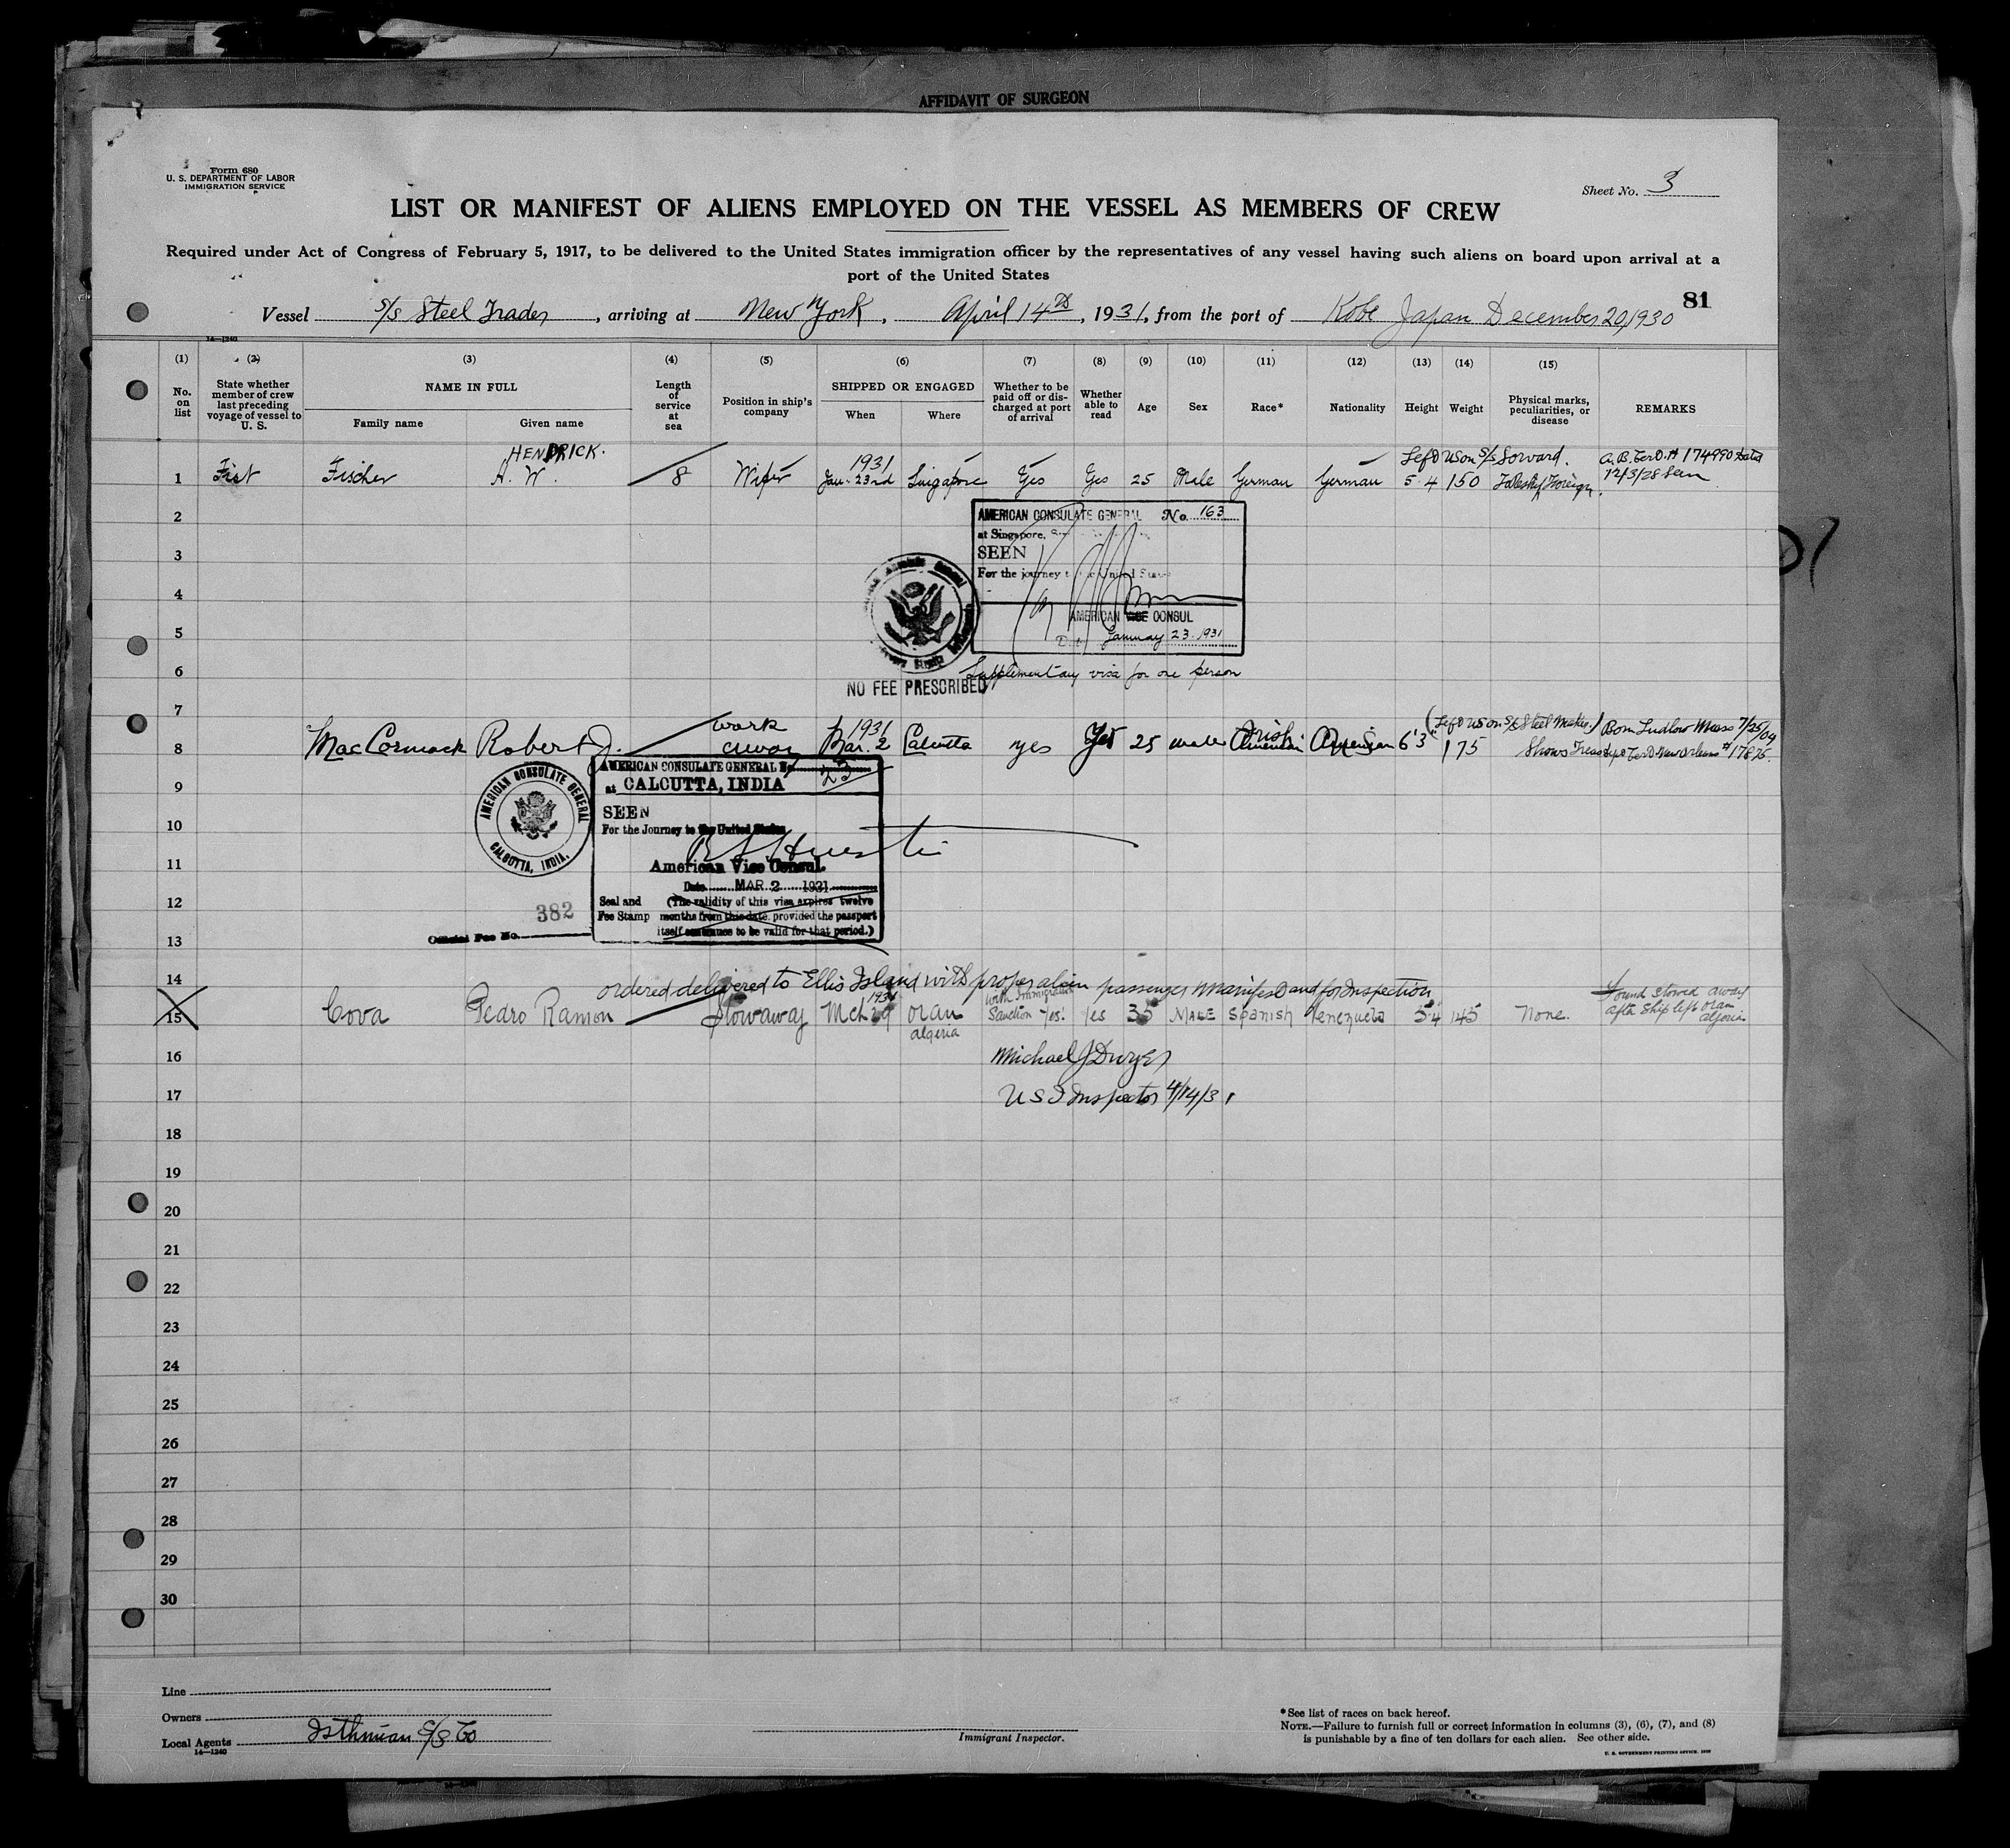 AFFIDAVIT OF SURGEON
Form 680
U. S. DEPARTMENT OF LABOR
IMMIGRATION SERVICE
Sheet No. 3
LIST OR MANIFEST OF ALIENS EMPLOYED ON THE VESSEL AS MEMBERS OF CREW
Required under Act of Congress of February 5, 1917, to be delivered to the United States immigration officer by the representatives of any vessel having such aliens on board upon arrival at a
port of the United States
81
Vessel S/S Steel Trader, arriving at New York, April 14th, 1931, from the port of Kobe Japan December 20, 1930
14—1240
(1) (2) (3) (4) (5) (6) (7) (8) (9) (10) (11) (12) (13) (14) (15)
No. on list
State whether member of crew last preceding voyage of vessel to U. S.
NAME IN FULL
Family name Given name
Length of service at sea
Position in ship's company
SHIPPED OR ENGAGED
When Where
Whether to be paid off or discharged at port of arrival
Whether able to read
Age Sex Race* Nationality Height Weight
Physical marks, peculiarities, or disease
REMARKS
HENDRICK. 1931 Left US on S/S
1 Fischer H. W. 8 Wiper Jan. 23rd Singapore Yes Yes 25 Male German German 5 4 150
12/3/28 Seen
2
AMERICAN CONSULATE GENERAL No. 163
at Singapore,
3
SEEN
For the journey to the United States
4
AMERICAN VICE CONSUL
5
Date January 23. 1931
6
Supplementary visa for one person
NO FEE PRESCRIBED
7
work 1931 Irish (Left US on S/S Steel Maker) Born Ludlow Mass 7/25/04
8 MacCormack Robert J. away Mar. 2 Calcutta yes Yes 25 male American American 6'3" 175 Shows New Orleans
AMERICAN CONSULATE GENERAL No. 23
at CALCUTTA, INDIA
AMERICAN CONSULATE GENERAL
CALCUTTA, INDIA.
9
SEEN
10
For the Journey to the United States
11
American Vice Consul.
Date MAR 2 1931
12
Seal and (The validity of this visa expires twelve
Fee Stamp months from this date provided the passport
itself continues to be valid for that period.)
382
Official Fee No.
13
14
ordered delivered to Ellis Island with proper alien passenger Manifest and for Inspection
15 Cova Pedro Ramon Stowaway Mch 29 1931 Oran Algeria with Immigration Sanction Yes. Yes 35 MALE Spanish Venezuela 5'4 145 None. Found stowed away after ship left Oran Algeria
16
Michael J Dwyer
17
U S I Inspector 4/14/31
18
19
20
21
22
23
24
25
26
27
28
29
30
Line
Owners
Local Agents Isthmian S/S Co
14—1240
Immigrant Inspector.
*See list of races on back hereof.
NOTE.—Failure to furnish full or correct information in columns (3), (6), (7), and (8)
is punishable by a fine of ten dollars for each alien. See other side.
U. S. GOVERNMENT PRINTING OFFICE